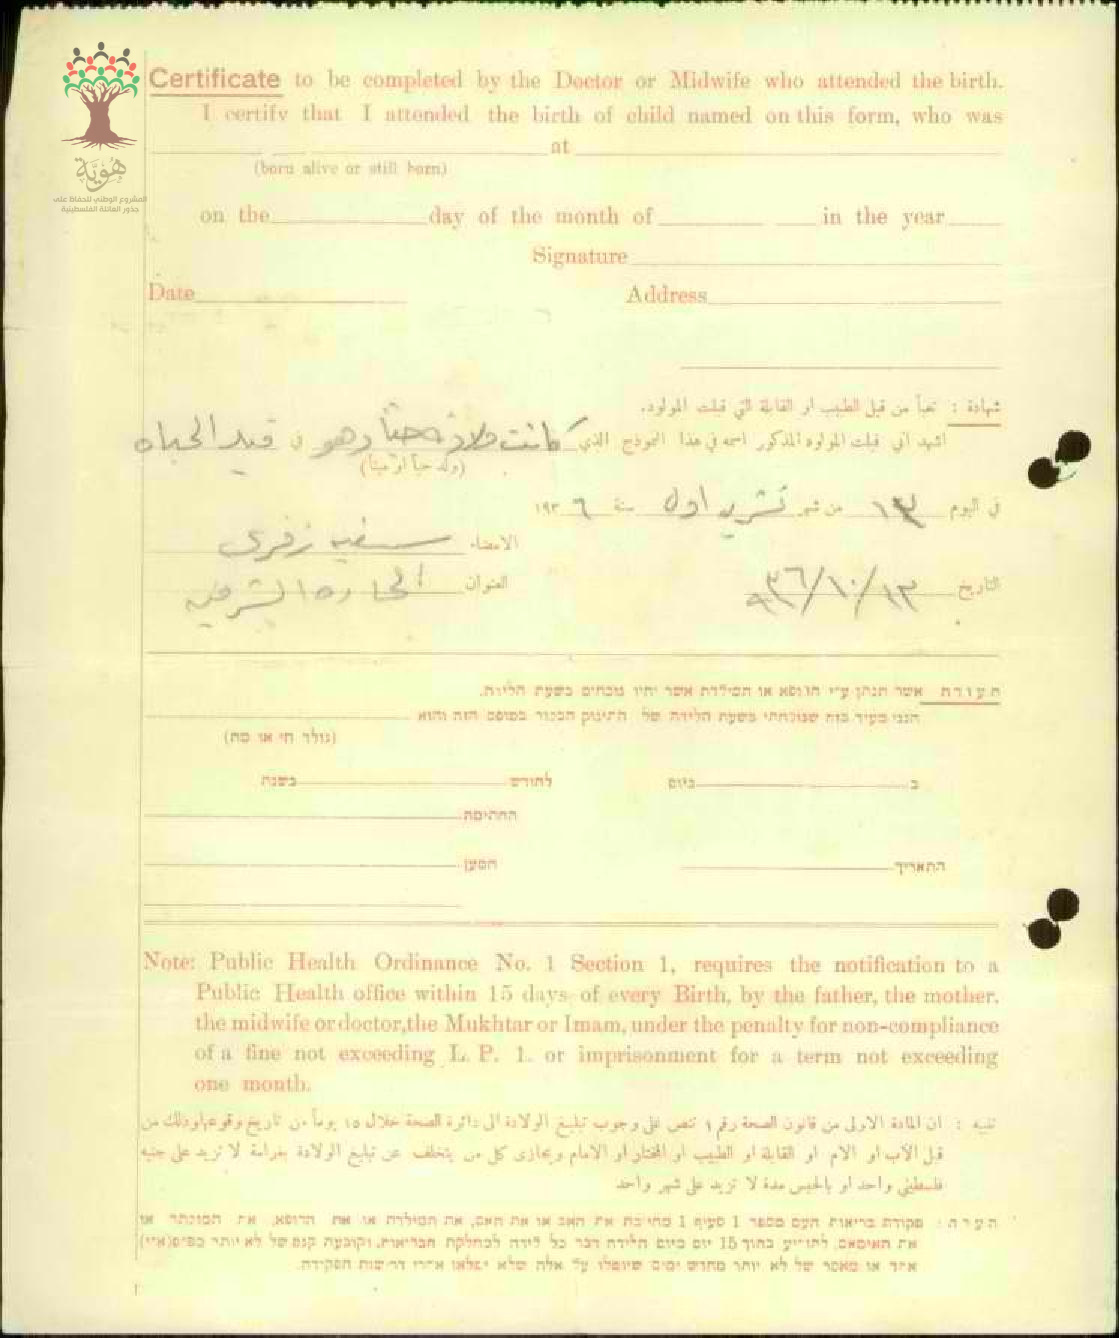 هُوِيَّة
المشروع الوطني للحفاظ على
جذور العائلة الفلسطينية
Certificate to be completed by the Doctor or Midwife who attended the birth.
I certify that I attended the birth of child named on this form, who was
at
(born alive or still born)
on the day of the month of in the year
Signature
Date Address
شهادة : تعبأ من قبل الطبيب او القابلة التي قبلت المولود.
اشهد اني قبلت المولود المذكور اسمه في هذا النموذج الذي كانت ولادته حياً وهو في قيد الحياه
(ولد حياً او ميتاً)
في اليوم ١٣ من شهر تشرين اول سنة ١٩٣٦
الامضاء
التاريخ ١٣/١٠/٩٣٦ العنوان الحاره الشرقيه
תעודה אשר תנתן ע״י הרופא או המילדת אשר יהיו נוכחים בשעת הלידה.
הנני מעיד בזה שנוכחתי בשעת הלידה של התינוק הנזכר בטופס הזה והוא
(נולד חי או מת)
ב ביום לחודש בשנת
החתימה
התאריך המען
Note: Public Health Ordinance No. 1 Section 1, requires the notification to a
Public Health office within 15 days of every Birth, by the father, the mother,
the midwife or doctor, the Mukhtar or Imam, under the penalty for non-compliance
of a fine not exceeding L. P. 1. or imprisonment for a term not exceeding
one month.
تنبيه : ان المادة الاولى من قانون الصحة رقم ١ تنص على وجوب تبليغ الولادة الى دائرة الصحة خلال ١٥ يوماً من تاريخ وقوعها وذلك من
قبل الآب او الام او القابلة او الطبيب او المختار او الامام ويجازى كل من يتخلف عن تبليغ الولادة بغرامة لا تزيد على جنيه
فلسطيني واحد او بالحبس مدة لا تزيد على شهر واحد
הערה: פקודת בריאות העם מספר 1 סעיף 1 מחייבת את האב או את האם, את המילדת או את הרופא, את המוכתר או
את האימאם, להודיע בתוך 15 יום מיום הלידה דבר כל לידה למחלקת הבריאות, וקובעת קנס של לא יותר מפ׳פ(א״י)
אחד או מאסר של לא יותר מחדש ימים שיוטלו על אלה שלא ימלאו אחרי דרישות הפקודה.